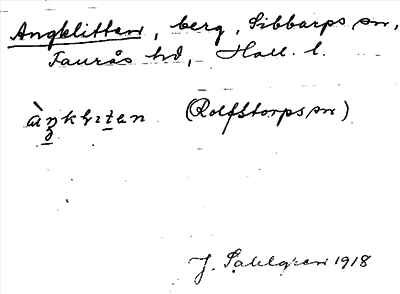 Angklitten, berg, Sibbarps sn,
Faurås hd, Hall. l.
(Rolfstorps sn)
J. Sahlgren 1918